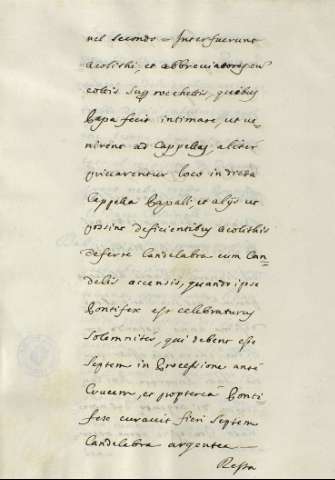 nel secondo = Interfuerunt
acolithi, et abbreviatores cu
cottis sup. rocchettis, quibus
Papa fecit intimare, ut ve-
nirent ad Cappellas, aliter
privarentur loco in dicta
Cappella Papali, et alijs ut
possint deficientibus acolithis
deferre Candelabra cum Can-
delis accensis, quando ipse
Pontifex est celebraturus
solemniter, qui debent esse
septem in Processione ante
Crucem, et propterea Ponti-
fex curavit fieri septem
Candelabra argentea —
Resta